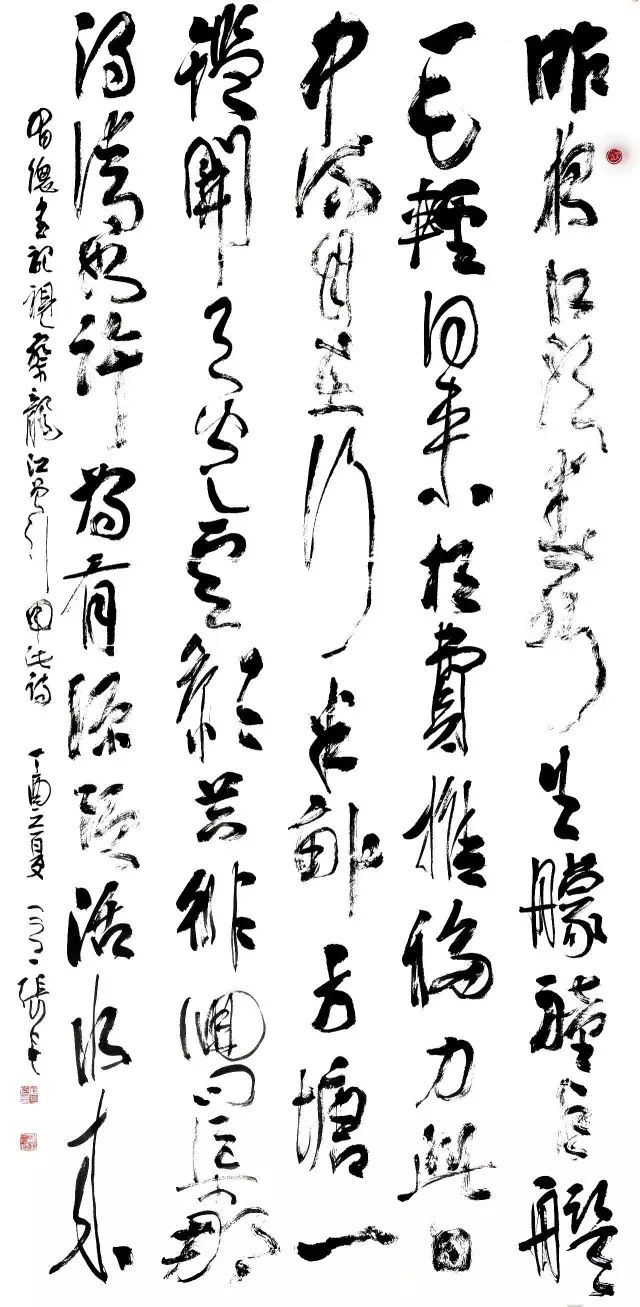 昨夜江邊春水生艨艟巨艦
一毛輕向來枉費推移力此日
中流自在行半畝方塘一
鑑開天光雲影共徘徊問渠那
得清如許為有源頭活水來
習總書記視察龍江曾引用此詩 丁酉之夏 張